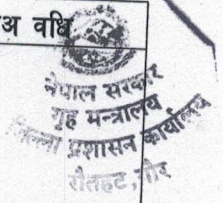 अ वधि
नेपाल सरकार
गृह मन्त्रालय
जिल्ला प्रशासन कार्यालय
रौतहट, गौर